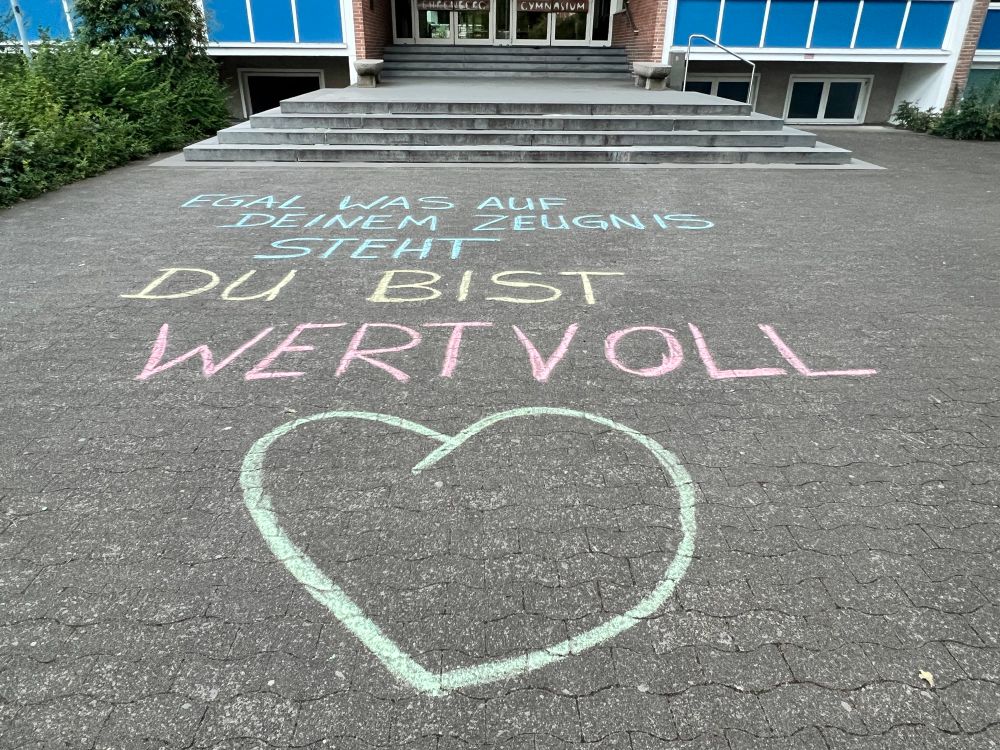 EHRENBERG GYMNASIUM
EGAL WAS AUF
DEINEM ZEUGNIS
STEHT
DU BIST
WERTVOLL